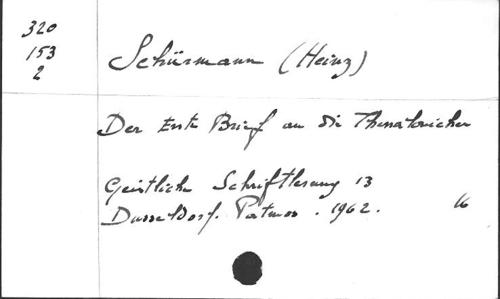 320
153
2
Schürmann (Heinz)
Der Erste Brief an die Thessalonicher
Geistliche Schriftlesung 13
Düsseldorf. Patmos. 1962. 16